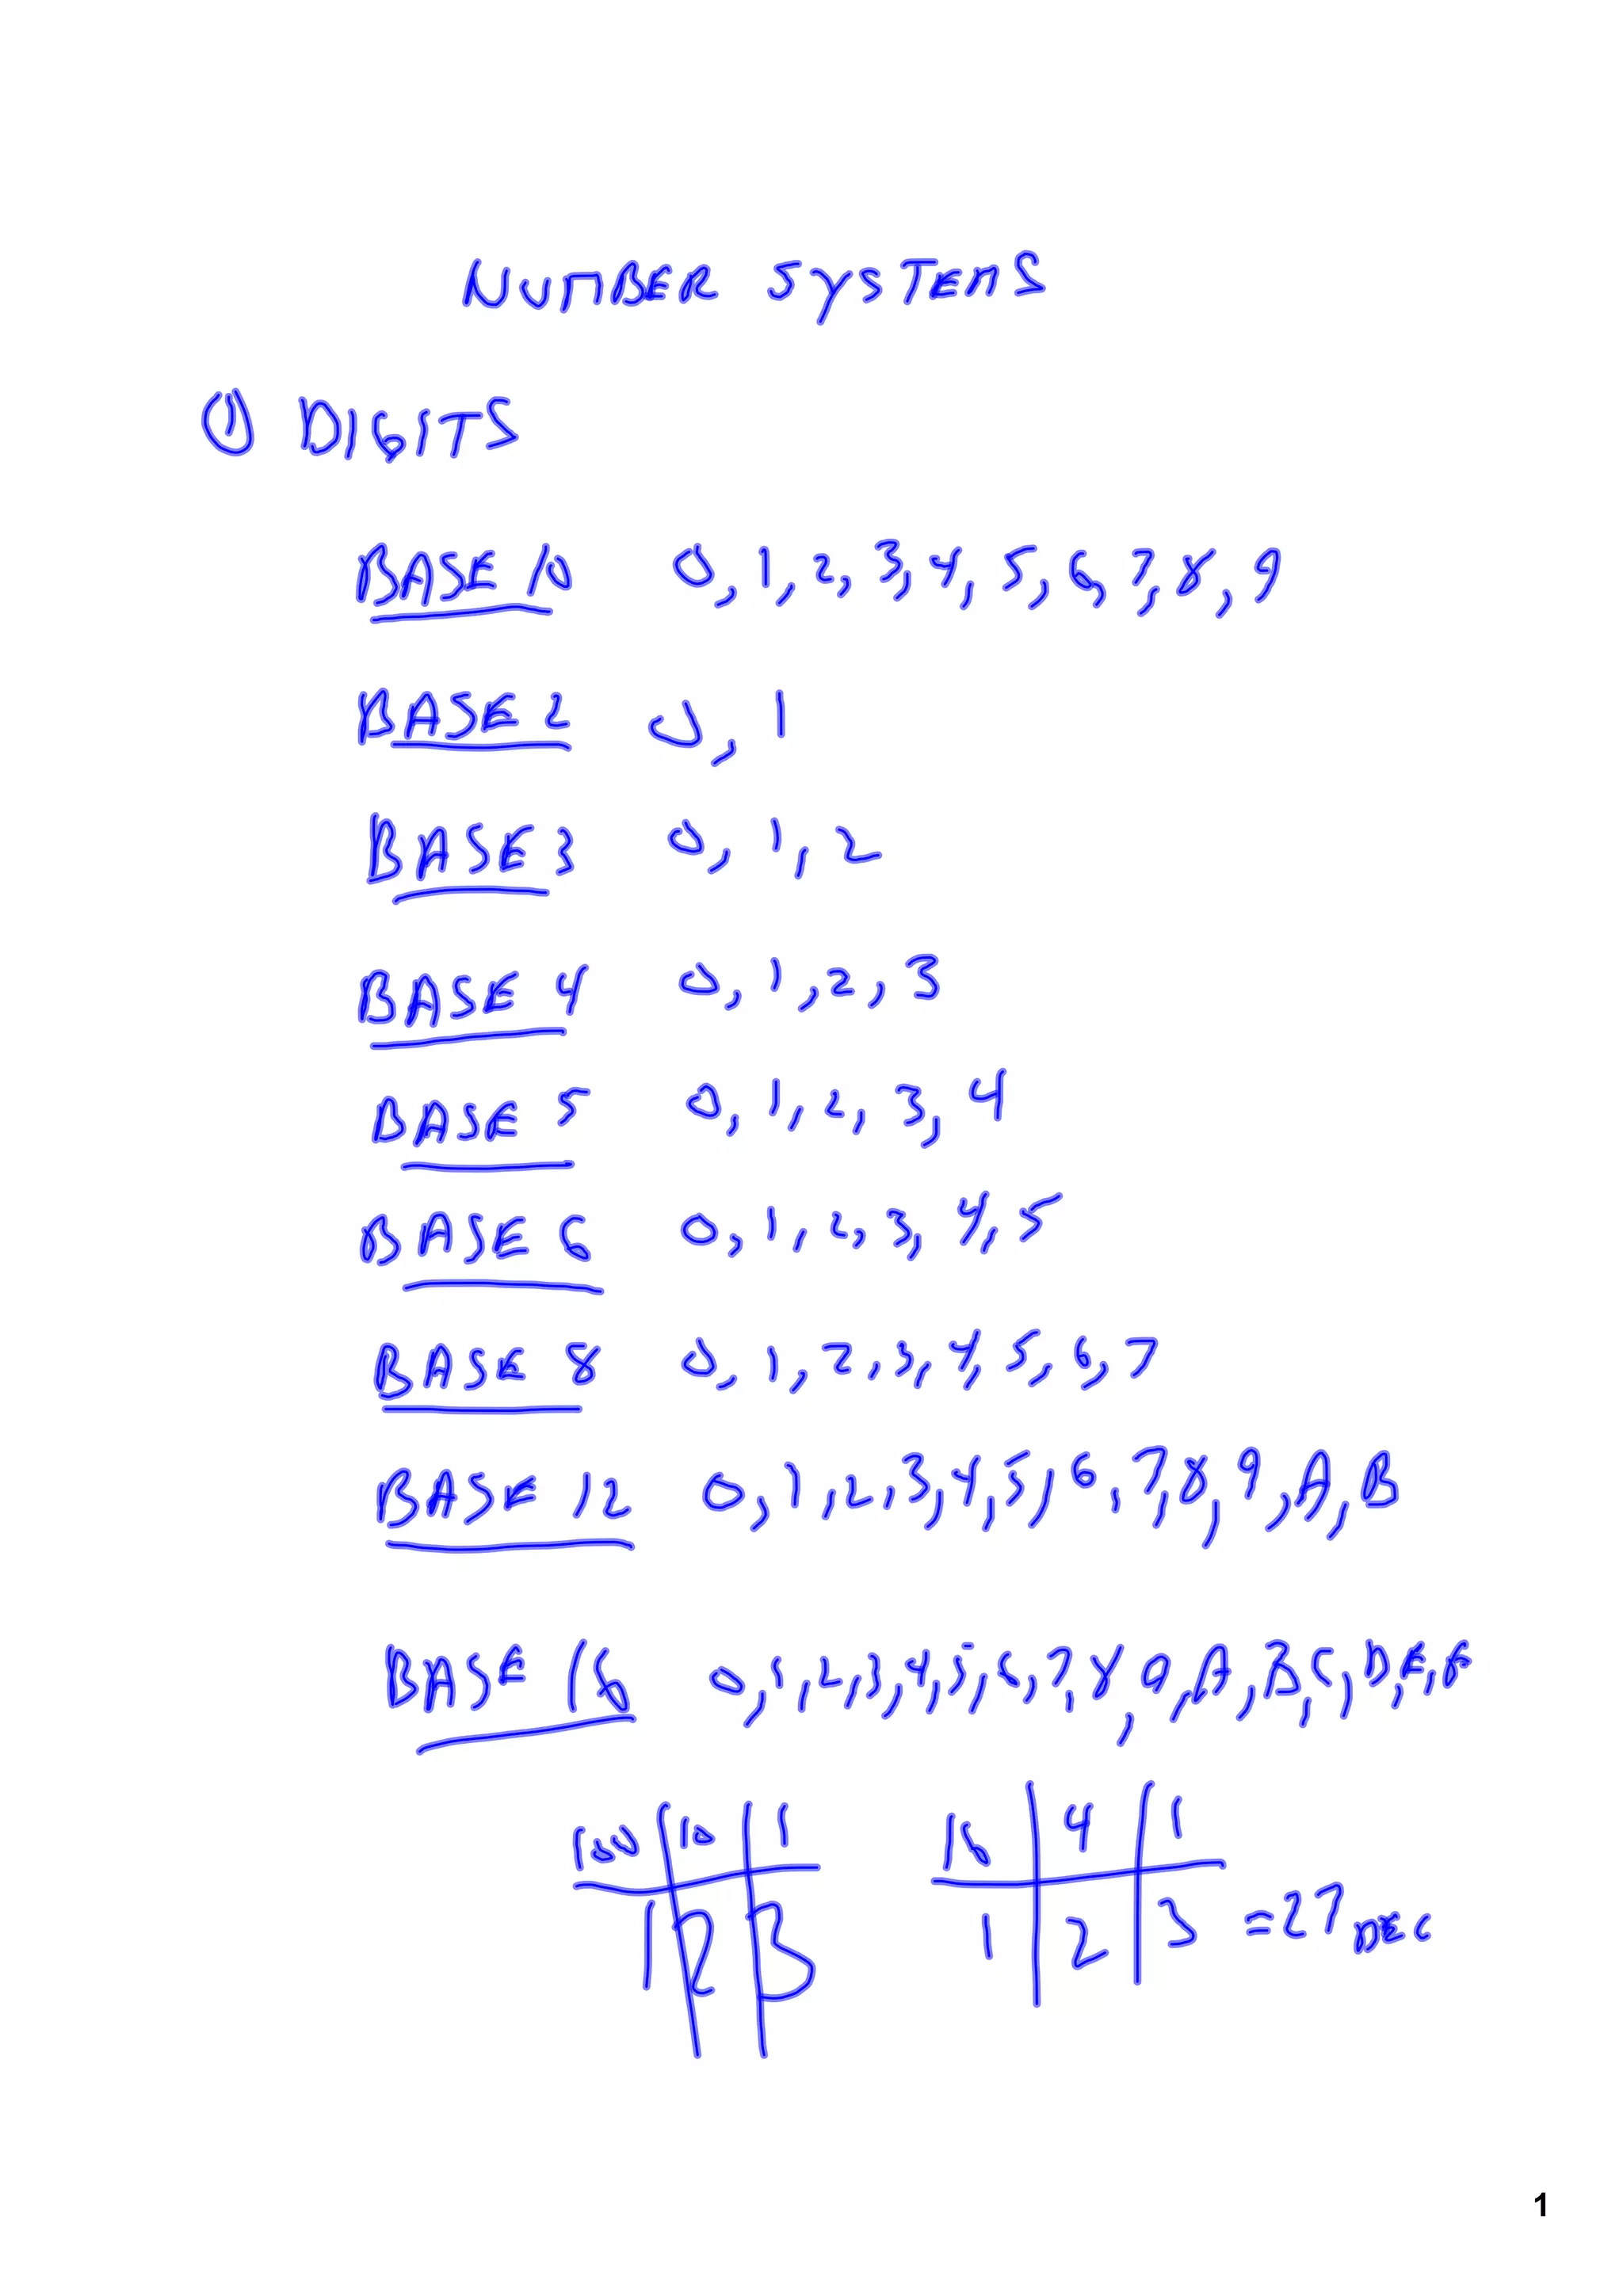 NUMBER SYSTEMS
① DIGITS
BASE 10 0, 1, 2, 3, 4, 5, 6, 7, 8, 9
BASE 2 0, 1
BASE 3 0, 1, 2
BASE 4 0, 1, 2, 3
BASE 5 0, 1, 2, 3, 4
BASE 6 0, 1, 2, 3, 4, 5
BASE 8 0, 1, 2, 3, 4, 5, 6, 7
BASE 12 0, 1, 2, 3, 4, 5, 6, 7, 8, 9, A, B
BASE 16 0, 1, 2, 3, 4, 5, 6, 7, 8, 9, A, B, C, D, E, F
100 10 1 16 4 1
1 2 3 1 2 3 = 27 DEC
1